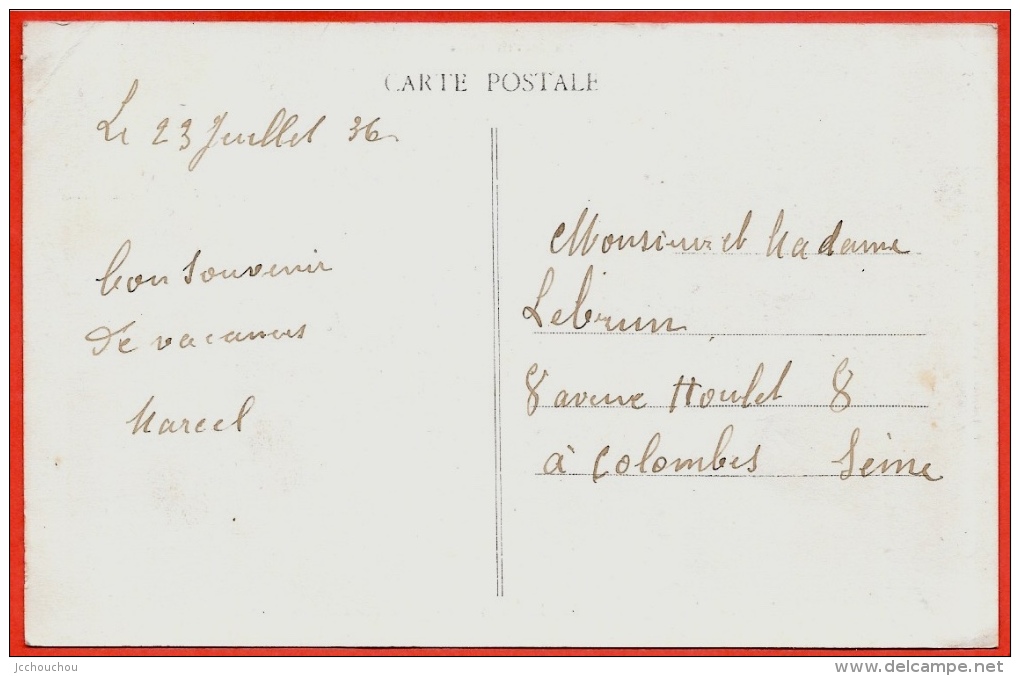 CARTE POSTALE
Le 23 Juillet 36
bon souvenir
de vacances
Marcel
Monsieur et Madame
Lebrun
8 avenue Houlet 8
à Colombes Seine
jcchouchou
www.delcampe.net